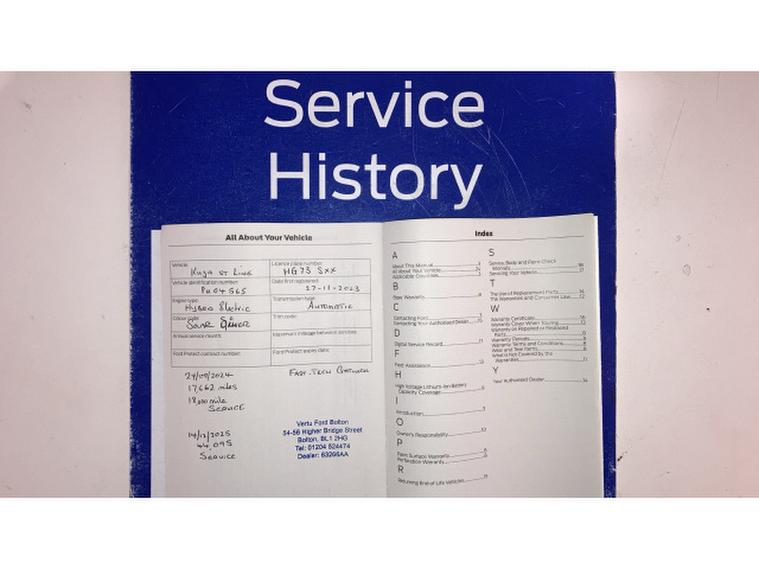 Service
History
All About Your Vehicle
Vehicle: Kuga ST Line
Licence plate number: HG73 SXX
Vehicle identification number:
Date first registered: 27-11-2023
Engine type: Hybrid Electric
Transmission type: Automatic
Colour code: Solar Silver
Trim code:
Annual service month:
Maximum mileage between services:
Ford Protect contract number:
Ford Protect expiry date:
24/09/2024
17,662 miles
18,000 mile
Service
14/12/2025
44,095
Service
Vertu Ford Bolton
54-56 Higher Bridge Street
Bolton, BL1 2HG
Tel: 01204 524474
Dealer: 63266AA
Index
A
About This Manual
All About Your Vehicle
Applicable Countries
B
Base Warranty
C
Contacting Ford
Contacting Your Authorised Dealer
D
Digital Service Record
F
Ford Assistance
H
High Voltage Lithium-Ion Battery
Capacity Coverage
I
Introduction
O
Owner's Responsibility
P
Paint Surface Warranty
Perforation Warranty
R
Returning End of Life Vehicles
S
Service, Body and Paint Check
Intervals
Servicing Your Vehicle
T
The Use of Replacement Parts
The Warranties and Consumer Law
W
Warranty Certificate
Warranty Cover When Touring
Warranty on Repaired or Replaced
Parts
Warranty Periods
Warranty Terms and Conditions
Wear and Tear Items
What is Not Covered by the
Warranties
Y
Your Authorised Dealer